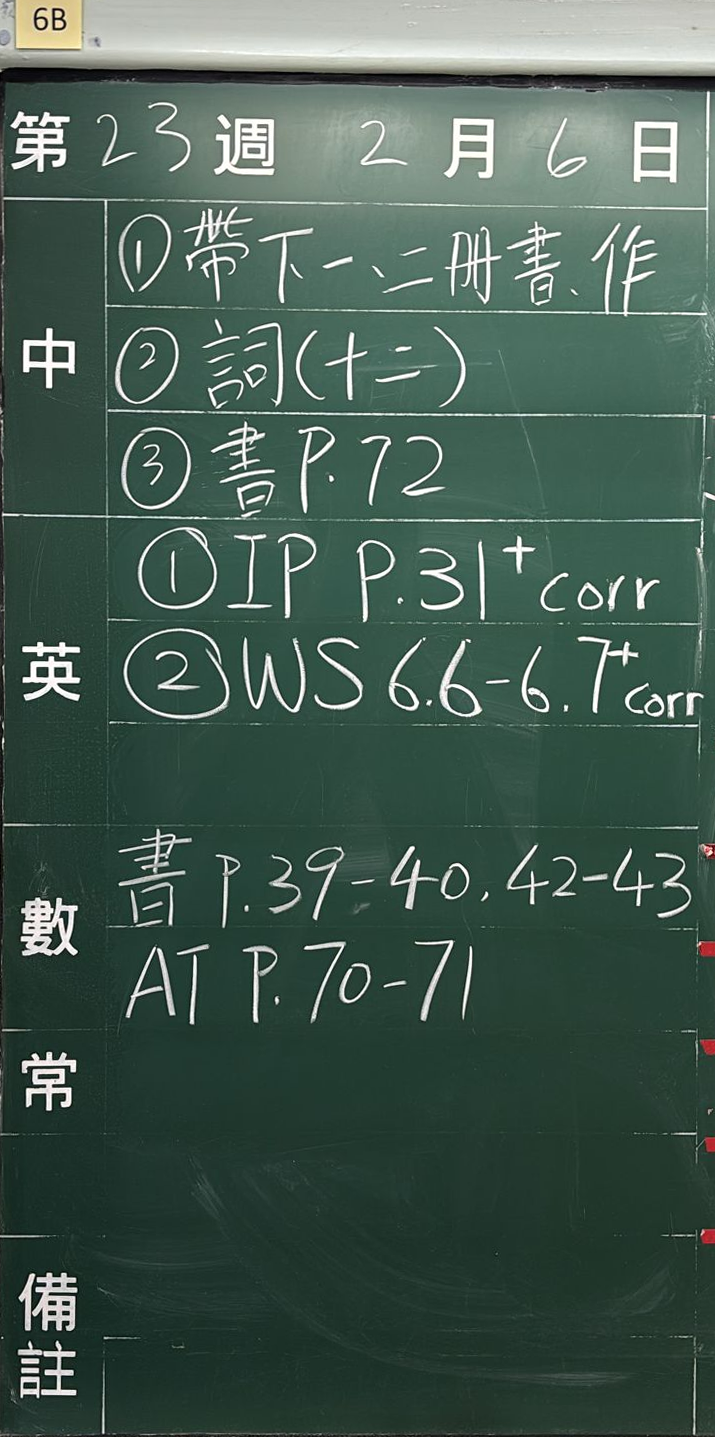 6B
第 23 週 2 月 6 日
中
①帶下一、二冊書、作
②詞(十二)
③書 P.72
英
①IP P.31⁺ corr
②WS 6.6-6.7⁺ corr
數
書 P.39-40, 42-43
AT P.70-71
常
備註